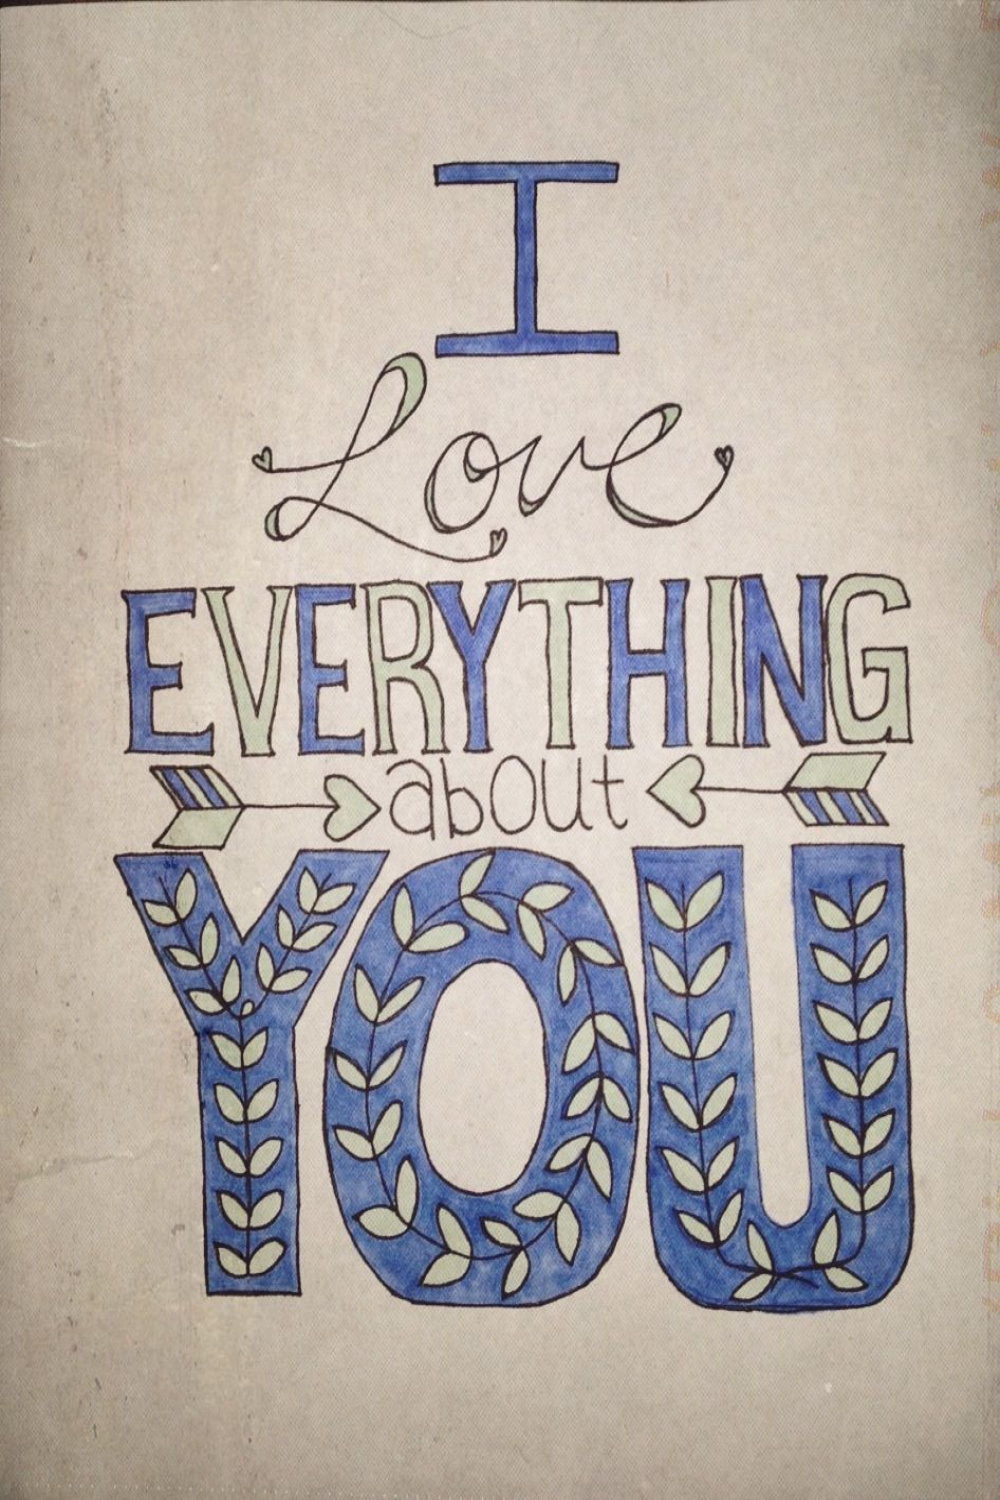 I
Love
EVERYTHING
about
YOU